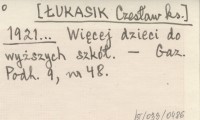 [ŁUKASIK Czesław ks.]
1921... Więcej dzieci do
wyższych szkół. — Gaz.
Podh. 9, nr 48.